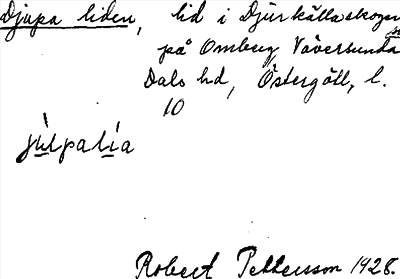 Djupa liden, lid i Djurkällaskogen
på Omberg, Väversunda sn
Dals hd, Östergötl. l.
10
júlpalía
Robert Pettersson 1928.